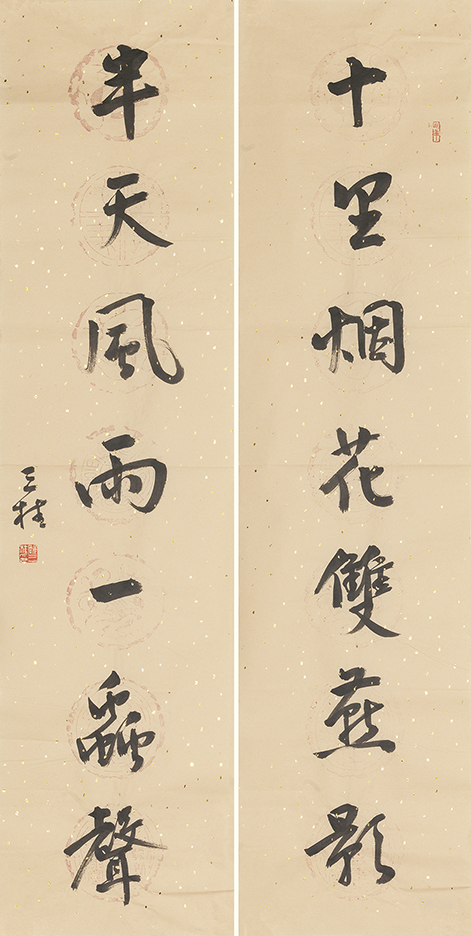 十里烟花雙燕影
半天風雨一聲
三桂